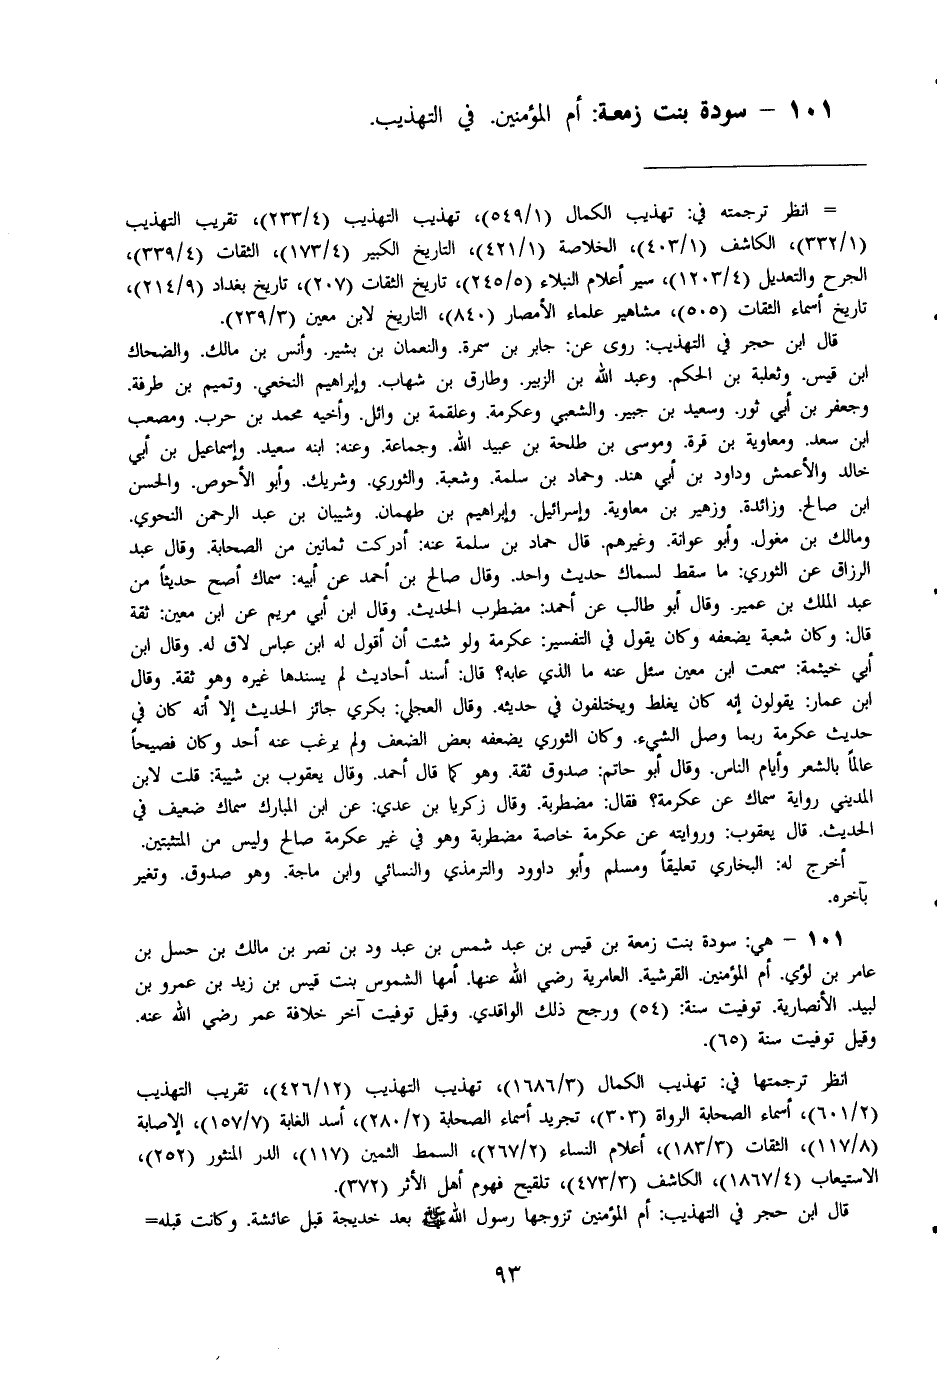 ١٠١ - سودة بنت زمعة: أم المؤمنين. في التهذيب.
= انظر ترجمته في: تهذيب الكمال (٥٤٩/١)، تهذيب التهذيب (٢٣٣/٤)، تقريب التهذيب
(٣٣٢/١)، الكاشف (٤٠٣/١)، الخلاصة (٤٢١/١)، التاريخ الكبير (١٧٣/٤)، الثقات (٣٣٩/٤)،
الجرح والتعديل (١٢٠٣/٤)، سير أعلام النبلاء (٢٤٥/٥)، تاريخ الثقات (٢٠٧)، تاريخ بغداد (٢١٤/٩)،
تاريخ أسماء الثقات (٥٠٥)، مشاهير علماء الأمصار (٨٤٠)، التاريخ لابن معين (٢٣٩/٣).
قال ابن حجر في التهذيب: روى عن: جابر بن سمرة. والنعمان بن بشير. وأنس بن مالك. والضحاك
ابن قيس. وثعلبة بن الحكم. وعبد الله بن الزبير. وطارق بن شهاب. وإبراهيم النخعي. وتميم بن طرفة.
وجعفر بن أبي ثور. وسعيد بن جبير. والشعبي وعكرمة. وعلقمة بن وائل. وأخيه محمد بن حرب. ومصعب
ابن سعد. ومعاوية بن قرة. وموسى بن طلحة بن عبيد الله. وجماعة. وعنه: ابنه سعيد. وإسماعيل بن أبي
خالد والأعمش وداود بن أبي هند. وحماد بن سلمة. وشعبة. والثوري. وشريك. وأبو الأحوص. والحسن
ابن صالح. وزائدة. وزهير بن معاوية. وإسرائيل. وإبراهيم بن طهمان. وشيبان بن عبد الرحمن النحوي.
ومالك بن مغول. وأبو عوانة. وغيرهم. قال حماد بن سلمة عنه: أدركت ثمانين من الصحابة. وقال عبد
الرزاق عن الثوري: ما سقط لسماك حديث واحد. وقال صالح بن أحمد عن أبيه: سماك أصح حديثاً من
عبد الملك بن عمير. وقال أبو طالب عن أحمد: مضطرب الحديث. وقال ابن أبي مريم عن ابن معين: ثقة
قال: وكان شعبة يضعفه وكان يقول في التفسير: عكرمة ولو شئت أن أقول له ابن عباس لاق له. وقال ابن
أبي خيثمة: سمعت ابن معين سئل عنه ما الذي عابه؟ قال: أسند أحاديث لم يسندها غيره وهو ثقة. وقال
ابن عمار: يقولون إنه كان يغلط ويختلفون في حديثه. وقال العجلي: بكري جائز الحديث إلا أنه كان في
حديث عكرمة ربما وصل الشيء. وكان الثوري يضعفه بعض الضعف ولم يرغب عنه أحد وكان فصيحاً
عالماً بالشعر وأيام الناس. وقال أبو حاتم: صدوق ثقة. وهو كما قال أحمد. وقال يعقوب بن شيبة: قلت لابن
المديني رواية سماك عن عكرمة؟ فقال: مضطربة. وقال زكريا بن عدي: عن ابن المبارك سماك ضعيف في
الحديث. قال يعقوب: وروايته عن عكرمة خاصة مضطربة وهو في غير عكرمة صالح وليس من المتثبتين.
أخرج له: البخاري تعليقاً ومسلم وأبو داوود والترمذي والنسائي وابن ماجة. وهو صدوق. وتغير
بآخره.
١٠١ - هي: سودة بنت زمعة بن قيس بن عبد شمس بن عبد ود بن نصر بن مالك بن حسل بن
عامر بن لؤي. أم المؤمنين. القرشية. العامرية رضي الله عنها. أمها الشموس بنت قيس بن زيد بن عمرو بن
لبيد. الأنصارية. توفيت سنة: (٥٤) ورجح ذلك الواقدي. وقيل توفيت آخر خلافة عمر رضي الله عنه.
وقيل توفيت سنة (٦٥).
انظر ترجمتها في: تهذيب الكمال (١٦٨٦/٣)، تهذيب التهذيب (٤٢٦/١٢)، تقريب التهذيب
(٦٠١/٢)، أسماء الصحابة الرواة (٣٠٣)، تجريد أسماء الصحابة (٢٨٠/٢)، أسد الغابة (١٥٧/٧)، الإصابة
(١١٧/٨)، الثقات (١٨٣/٣)، أعلام النساء (٢٦٧/٢)، السمط الثمين (١١٧)، الدر المنثور (٢٥٢)،
الاستيعاب (١٨٦٧/٤)، الكاشف (٤٧٣/٣)، تلقيح فهوم أهل الأثر (٣٧٢).
قال ابن حجر في التهذيب: أم المؤمنين تزوجها رسول الله ﷺ بعد خديجة قبل عائشة. وكانت قبله=
٩٣